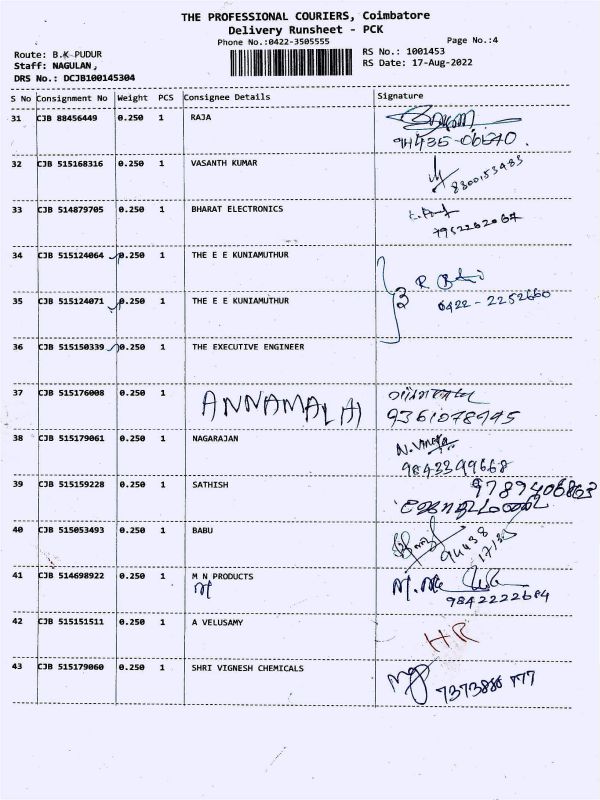 THE PROFESSIONAL COURIERS, Coimbatore
Delivery Runsheet - PCK
Phone No.:0422-3505555
Page No.:4
Route: B.K PUDUR
RS No.: 1001453
Staff: NAGULAN,
RS Date: 17-Aug-2022
DRS No.: DCJB100145304
S No Consignment No Weight PCS Consignee Details Signature
31 CJB 88456449 0.250 1 RAJA
32 CJB 515168316 0.250 1 VASANTH KUMAR
8300153483
33 CJB 514879705 0.250 1 BHARAT ELECTRONICS
7952262067
34 CJB 515124064 0.250 1 THE E E KUNIAMUTHUR
35 CJB 515124071 0.250 1 THE E E KUNIAMUTHUR
3
0422-2252660
36 CJB 515150339 0.250 1 THE EXECUTIVE ENGINEER
37 CJB 515176008 0.250 1 ANNAMALAI
9361078995
38 CJB 515179061 0.250 1 NAGARAJAN
9843399668
39 CJB 515159228 0.250 1 SATHISH
9789406863
40 CJB 515053493 0.250 1 BABU
94438
41 CJB 514698922 0.250 1 M N PRODUCTS
9842222684
42 CJB 515151511 0.250 1 A VELUSAMY
HR
43 CJB 515179060 0.250 1 SHRI VIGNESH CHEMICALS
7373886777